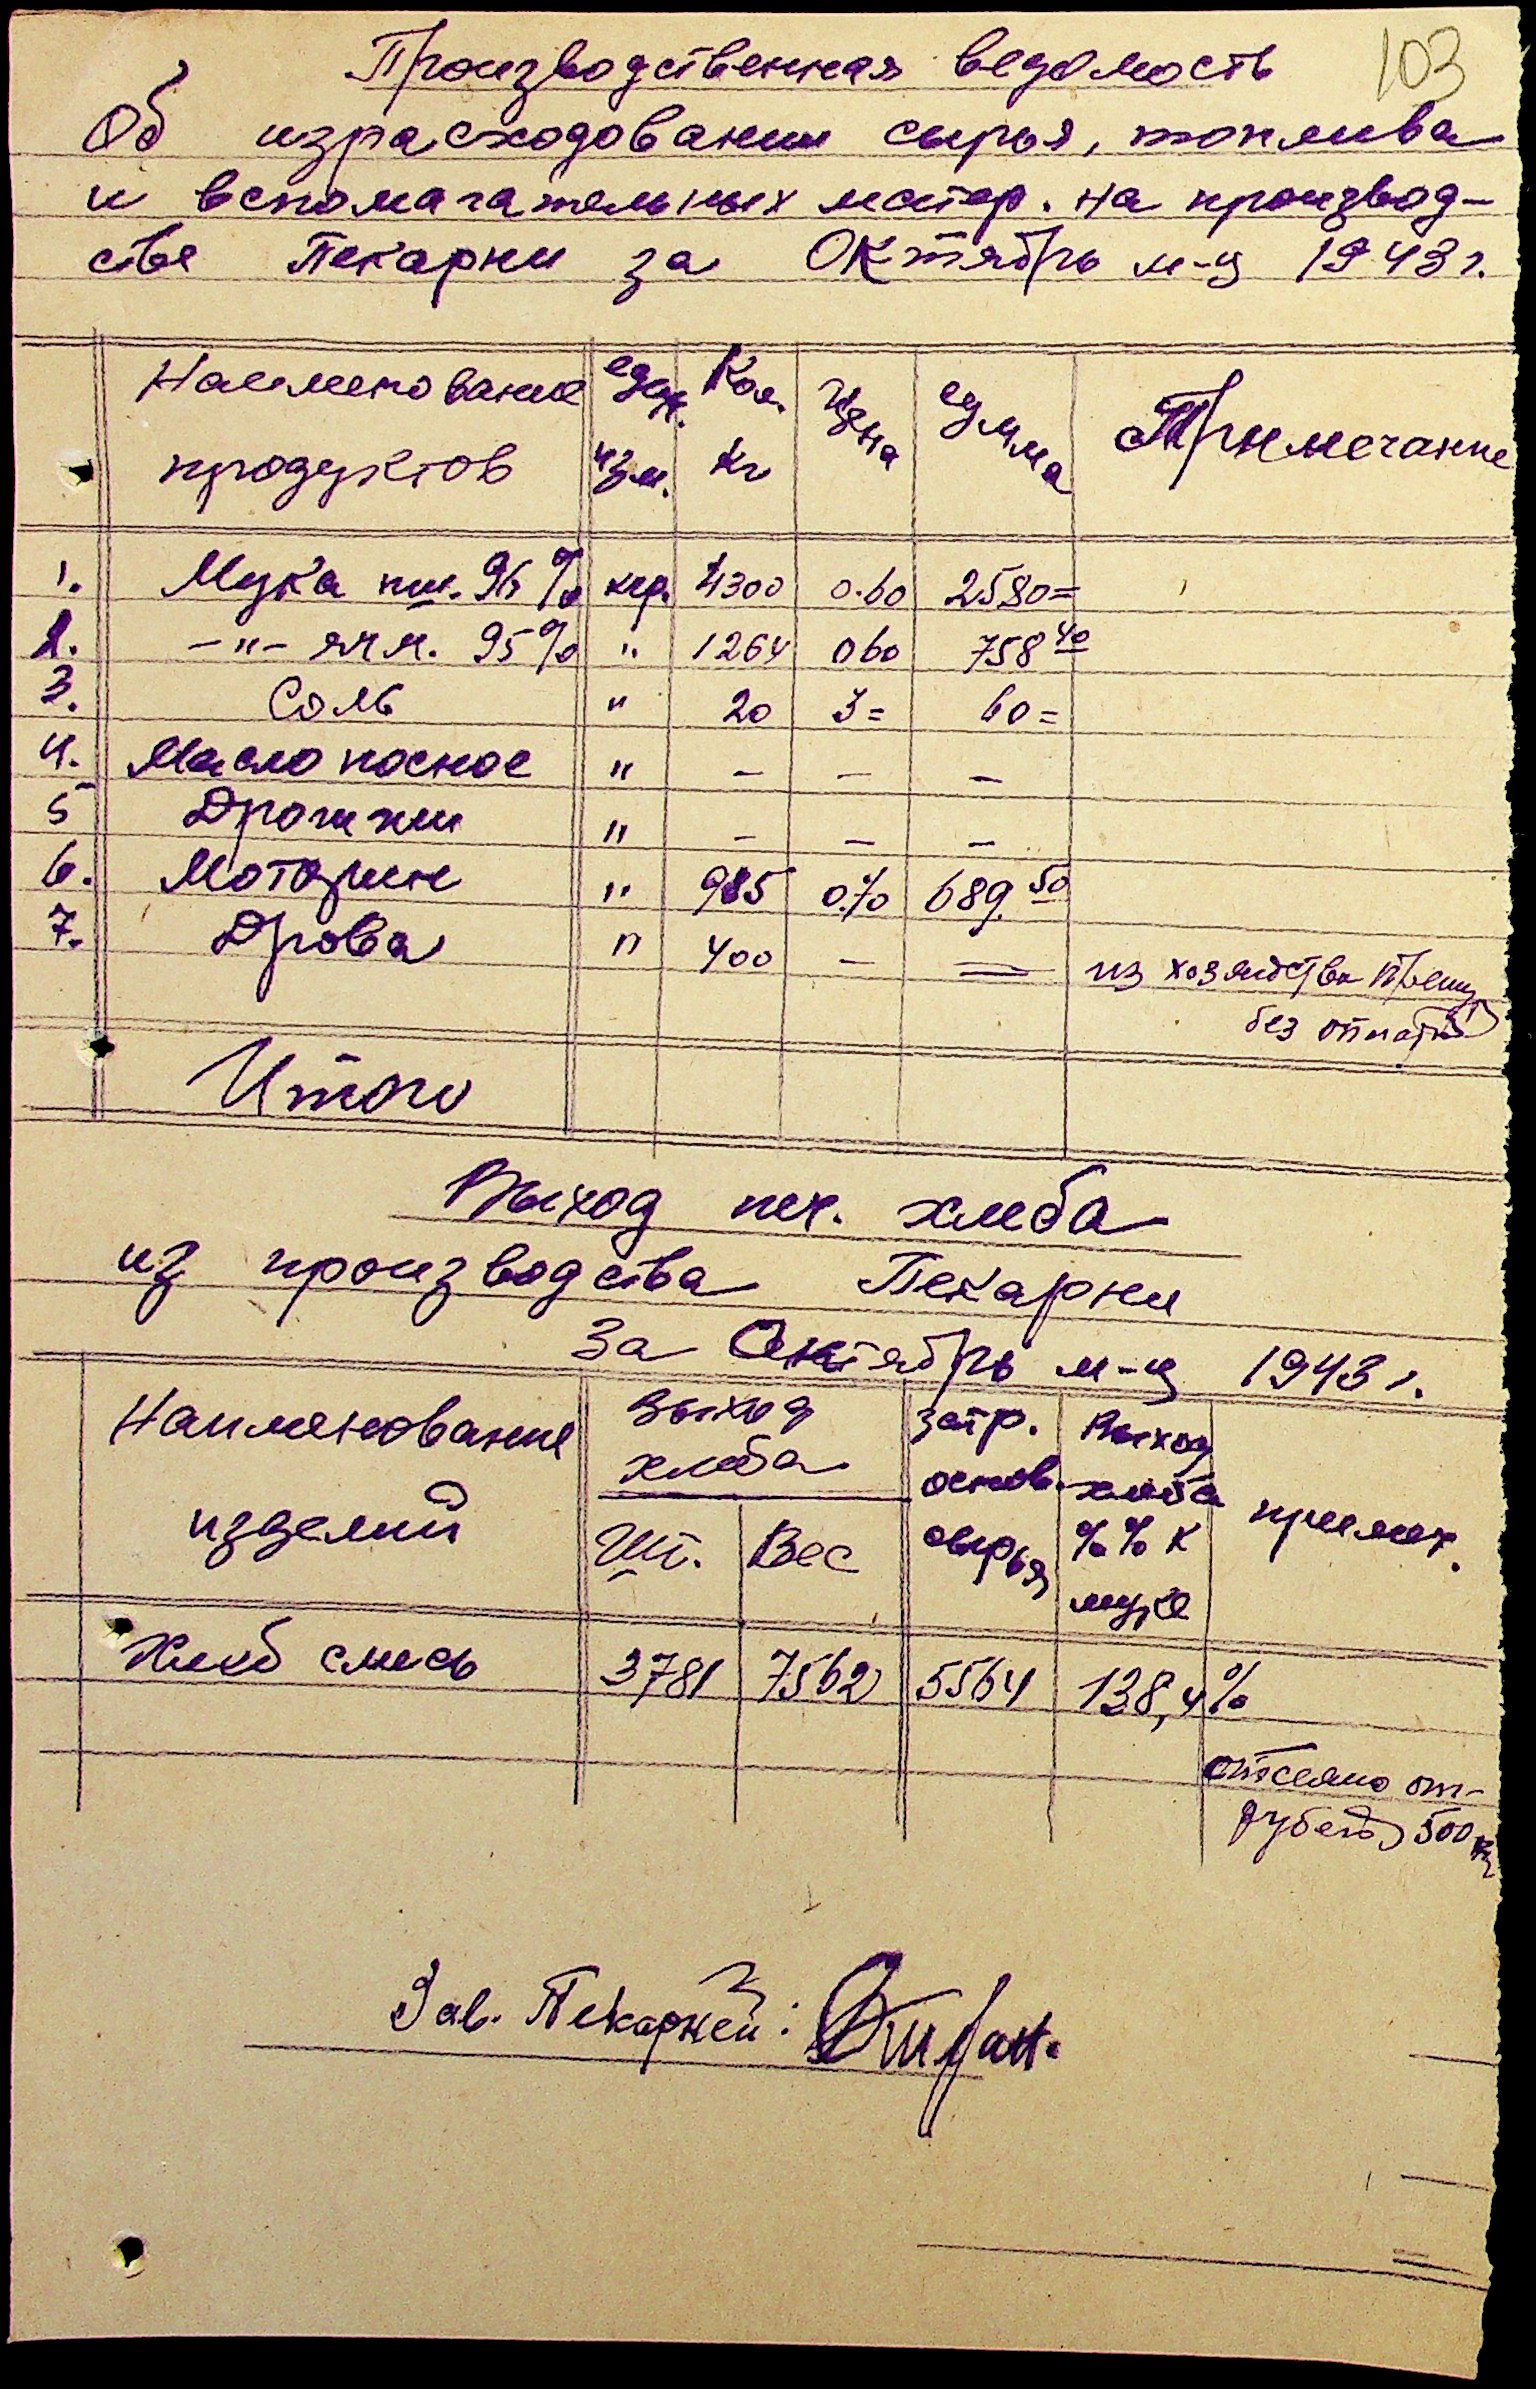 103
Производственная ведомость
Об израсходовании сырья, топлива
и вспомагательных матер. на производ-
стве Пекарни за Октябрь м-ц 1943 г.
Наименование продуктов един. изм. Кол. Кг Цена Сумма Примечание
1. Мука пш. 96% кгр. 4300 0.60 2580=
2. -"- ячм. 95% " 1264 060 758 40
3. Соль " 20 3= 60=
4. Масло посное " — — —
5 Дрожжи " — — —
6. " 985 0.70 689.50
7. Дрова " 400 — = из хозяйства
без оплаты
Итого
Выход печ. хлеба
из производства Пекарни
За Октябрь м-ц 1943 г.
Наименование изделий выход хлеба Шт. Вес затр. основ. сырья Выход хлеба %% к муке примеч.
Хлеб смесь 3781 7562 5564 138,4%
отсеяно от-
рубей 500 кг
Зав. Пекарней: